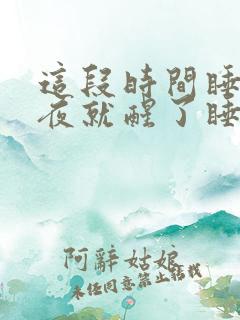 這段時間睡
夜就醒了睡
阿辭姑娘
未经同意禁止转载